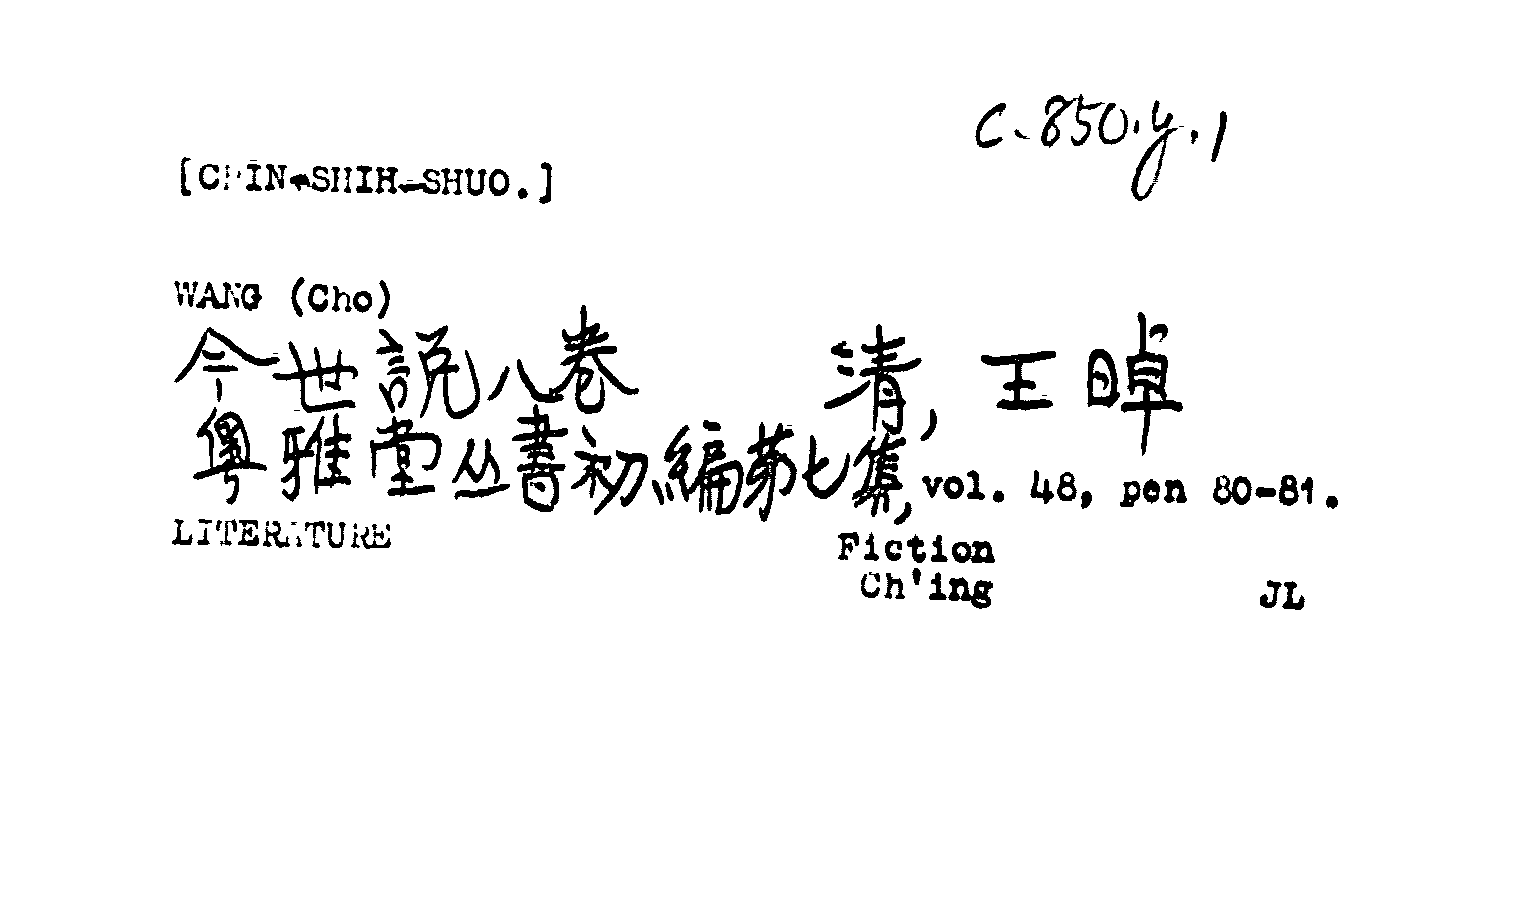 C.850.y.1
[CHIN-SHIH-SHUO.]
WANG (Cho)
今世説八巻 清, 王晫
粤雅堂丛書初編第七集, vol. 48, pen 80-81.
LITERATURE Fiction
Ch'ing JL